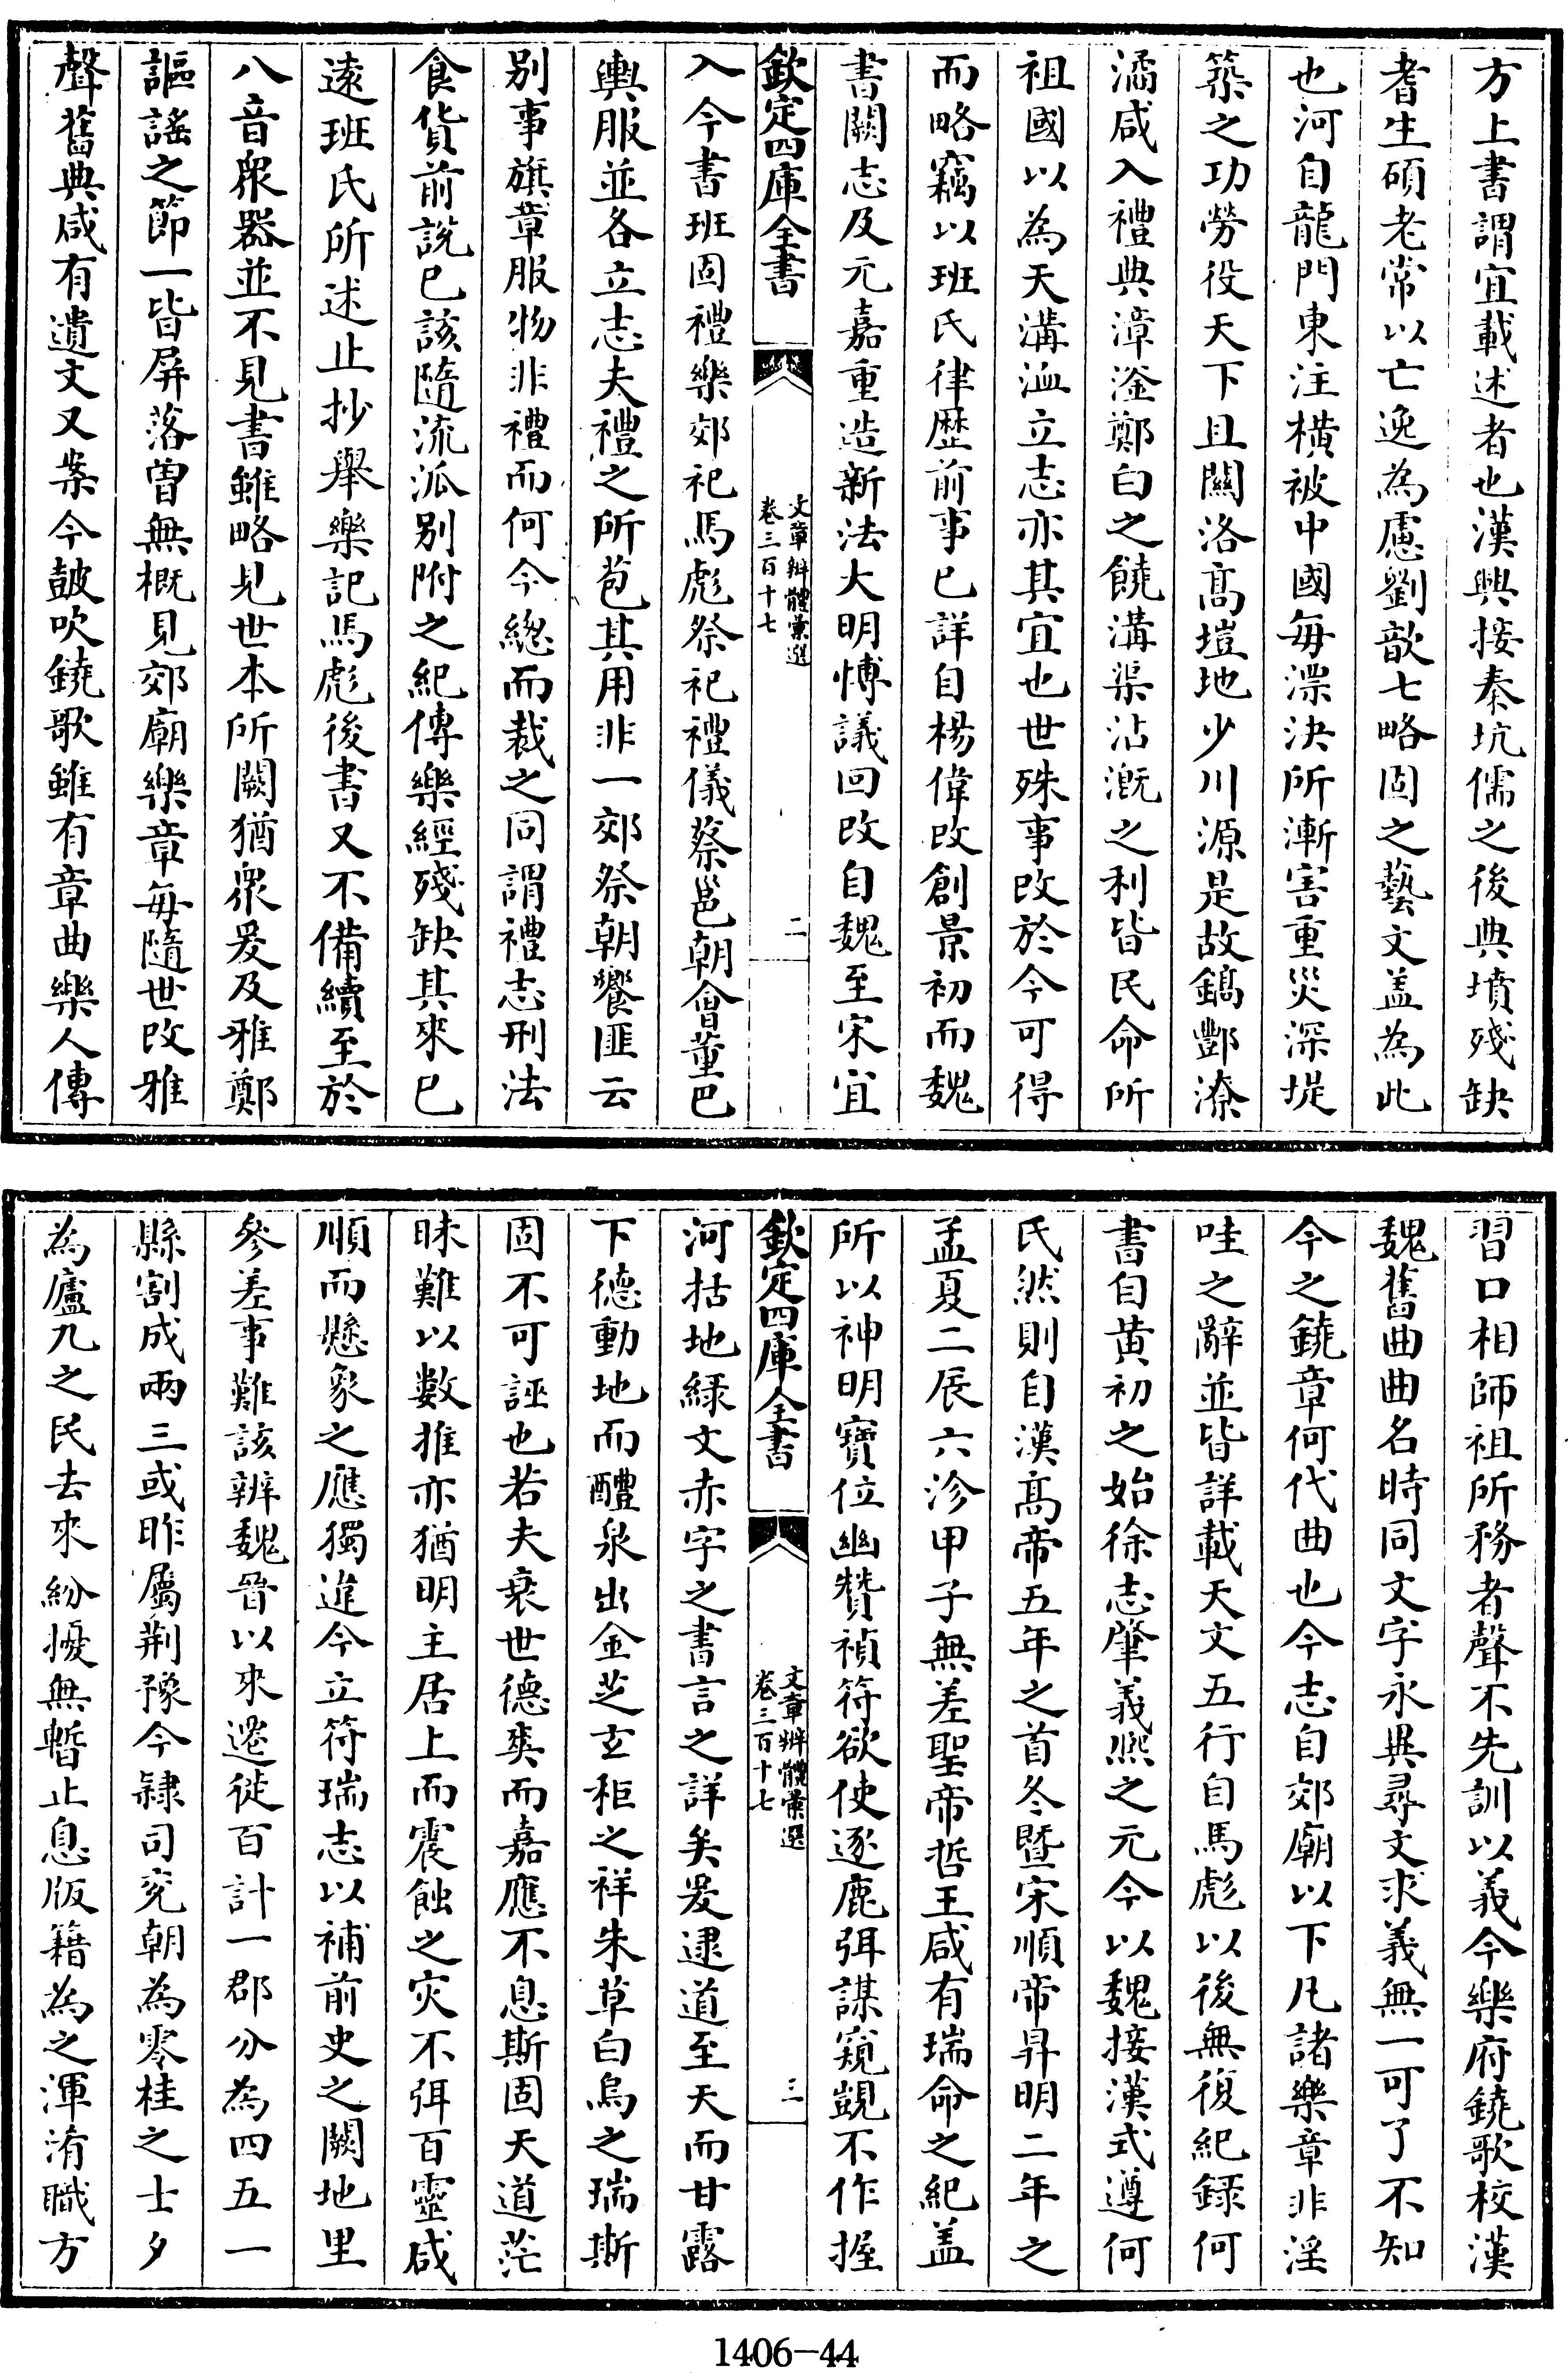 方上書謂宜載述者也漢興接秦坑儒之後典墳殘缺
耆生碩老常以亡逸為慮劉歆七略固之藝文盖為此
也河自龍門東注横被中國每漂決所漸害重災深堤
築之功勞役天下且關洛髙塏地少川源是故鎬酆潦
潏咸入禮典漳滏鄭白之饒溝渠沾溉之利皆民命所
祖國以為天溝洫立志亦其宜也世殊事改於今可得
而略竊以班氏律歴前事已詳自楊偉改創景初而魏
書闕志及元嘉重造新法大明愽議回改自魏至宋宜
欽定四庫全書
文章辨體彚選
卷三百十七
二
入今書班固禮樂郊祀馬彪祭祀禮儀蔡邕朝會董巴
輿服並各立志夫禮之所苞其用非一郊祭朝饗匪云
别事旗章服物非禮而何今緫而裁之同謂禮志刑法
食貨前說已該隨流派别附之紀傳樂經殘缺其來已
逺班氏所述止抄舉樂記馬彪後書又不備續至於
八音衆器並不見書雖略見世本所闕猶衆爰及雅鄭
謳謡之節一皆屏落曽無概見郊廟樂章每隨世改雅
聲舊典咸有遺文又案今鼔吹鐃歌雖有章曲樂人傳
習口相師祖所務者聲不先訓以義今樂府鐃歌校漢
魏舊曲曲名時同文字永異尋文求義無一可了不知
今之鐃章何代曲也今志自郊廟以下凡諸樂章非淫
哇之辭並皆詳載天文五行自馬彪以後無復紀録何
書自黄初之始徐志肇義熙之元今以魏接漢式遵何
氏然則自漢髙帝五年之首冬暨宋順帝昇明二年之
孟夏二辰六沴甲子無差聖帝哲王咸有瑞命之紀盖
所以神明寶位幽贊禎符欲使逐鹿弭謀窺覬不作握
欽定四庫全書
文章辨體彚選
卷三百十七
三
河括地緑文赤字之書言之詳矣爰逮道至天而甘露
下德動地而醴泉出金芝玄秬之祥朱草白烏之瑞斯
固不可誣也若夫衰世德爽而嘉應不息斯固天道茫
昧難以數推亦猶明主居上而震蝕之灾不弭百靈咸
順而懸象之應獨違今立符瑞志以補前史之闕地里
參差事難該辨魏晉以來遷徙百計一郡分為四五一
縣割成兩三或昨屬荆豫今隸司兖朝為零桂之士夕
為廬九之民去來紛擾無暫止息版籍為之渾淆職方
1406-44